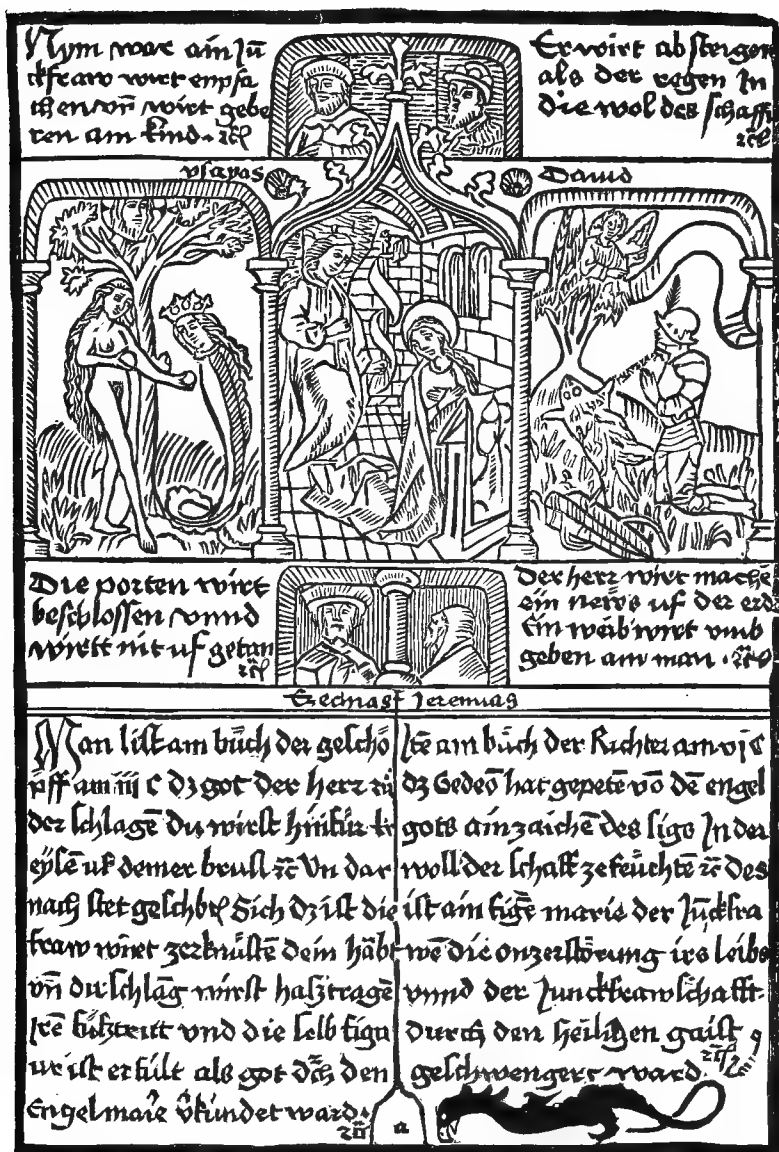 Nym war ain Jū
ckfraw wirt enpfa
chen vn̄ wirt gebe
ren ain kind · ⁊c̄
Er wirt ab steigen
als der regen In
die wol des schaffs
⁊c̄
ysayas
Dauid
Die porten wirt
beschlossen vnnd
wirtt nit uf getan
⁊c̄
Der herr wirt mache
ein news uf der erd
Ein weib wirt vmb
geben ain man · ⁊c̄
Jeremias
Man list am bůch der geschö
pff am iii c dz got der herr zů
der schlagē Du wirst hinfür
uf deiner brust ⁊c̄ Vn dar
nach stet Sich dz ist die
fraw wirt zerknüstē dein häbt
vn̄ du schlāg wirst hasz tragē
Irē fůsztritt vnd die selb figu
ur ist erfült als got dch̄ den
Engel marie v̄kündet ward ·
⁊c̄
a
Itē am bůch der Richter am vi c
dz Gedeō hat gepetē vō dē engel
gots ain zaichē des sigs In der
woll der schaff ze feüchtē ⁊c̄ des
ist ain figē marie der Jūckfra
wē die onzerstörung irs leibs
vnnd der Junckfrawschafft
durch den heiligen gaist
geschwengert ward ·
⁊c̄